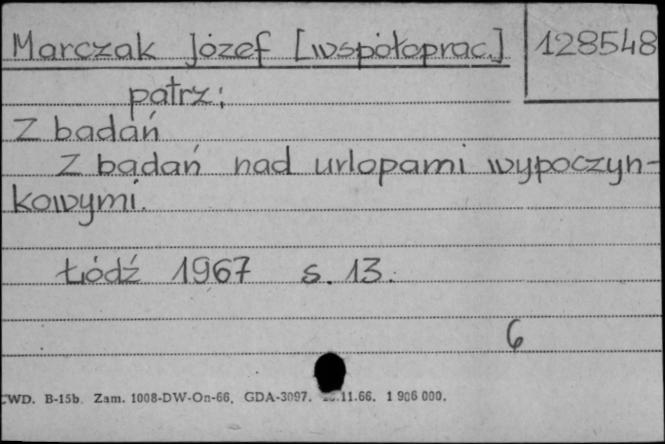 Marczak Józef [współoprac.] 128548
patrz:
Z badań
Z badań nad urlopami wypoczyn-
kowymi.
Łódź 1967 s. 13.
6
CWD. B-15b. Zam. 1008-DW-On-66. GDA-3097. .11.66. 1 906 000.